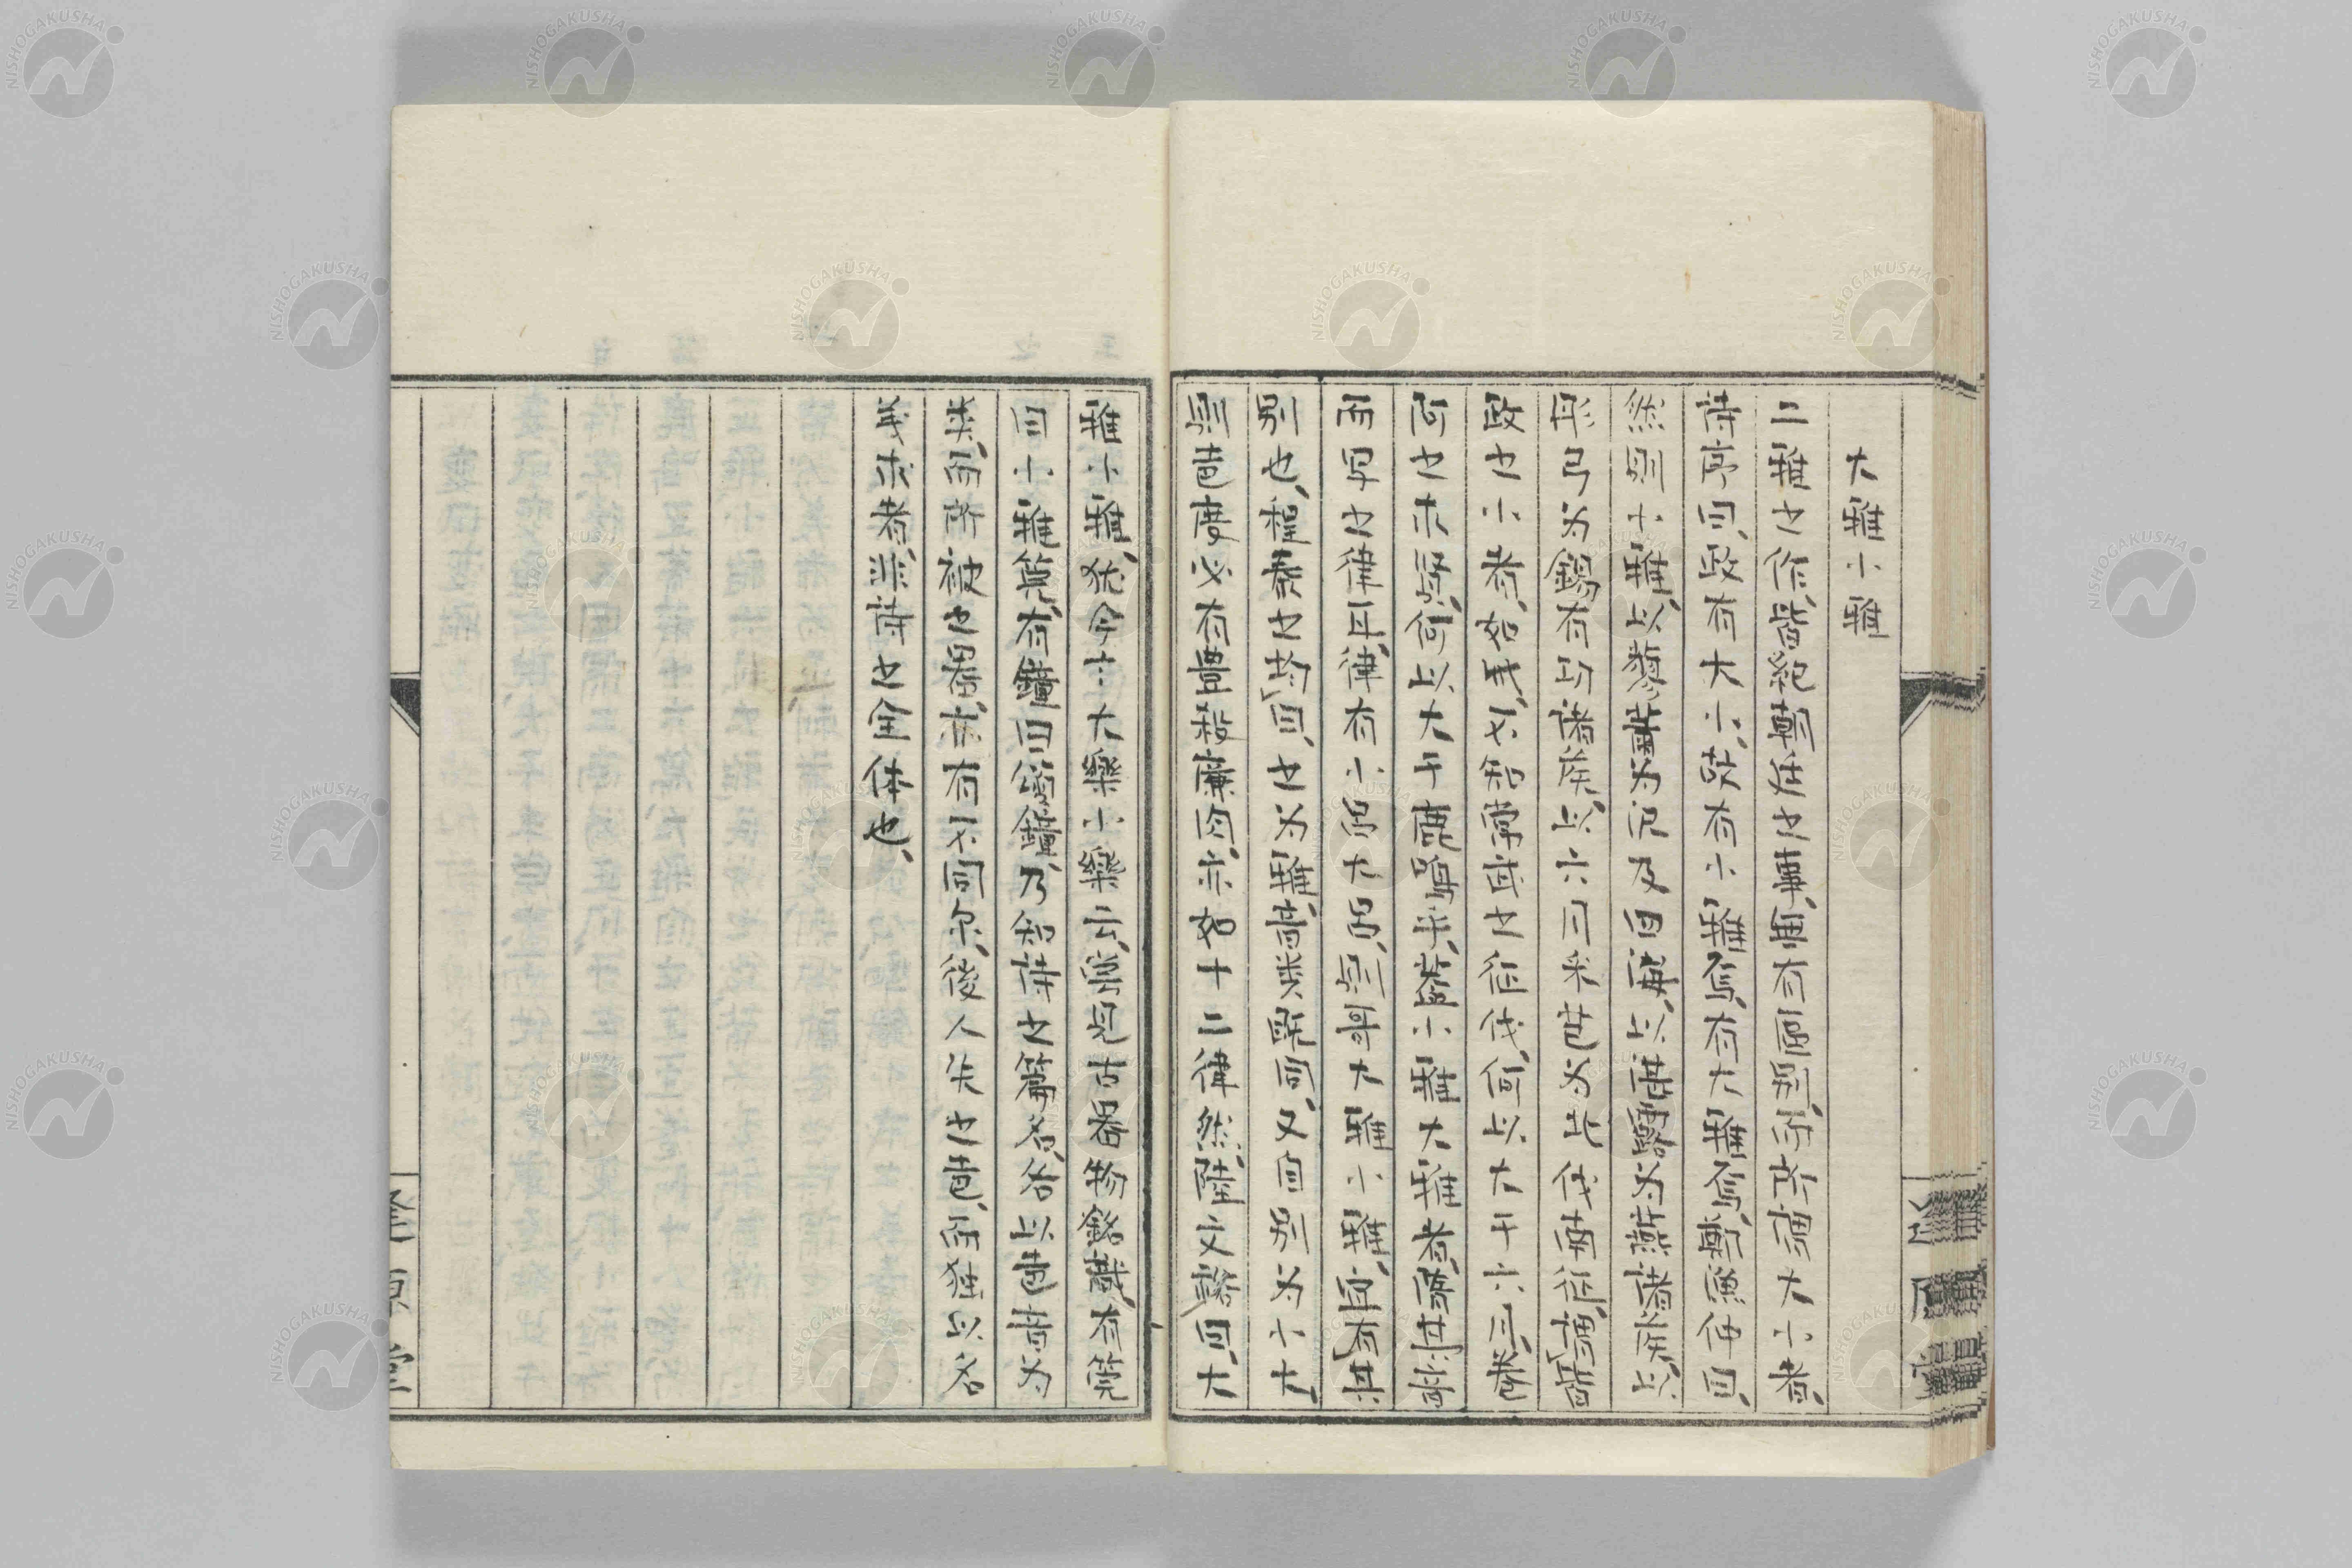 大雅小雅
二雅之作、皆紀朝廷之事、無有區別、而所謂大小者、
詩序曰、政有大小、故有小雅焉、有大雅焉、鄭漁仲曰、
然則小雅、以蓼蕭為沢及四海、以湛露為燕諸侯、以
彤弓為錫有功諸侯、以六月采芑為北伐南征、謂皆
政之小者、如此、不知常武之征伐、何以大于六月、卷
阿之求賢、何以大于鹿鳴乎、蓋小雅大雅者、
而早之律耳、律有小呂大呂、則哥大雅小雅、宜有其
別也、程泰之均曰、之為雅、音类既同、又自別為小大、
則音度必有豊殺廉肉、亦如十二律然、陸文
曰、大
雅小雅、犹今言大樂小樂云、嘗見古器物銘識、有筦
曰小雅筦、有鐘曰頌鐘、乃知詩之篇名、各以音音为
类、而所被之器、亦有不同尔、後人失之音、而独以名
義求者、非詩之全体也、
NISHOGAKUSHA